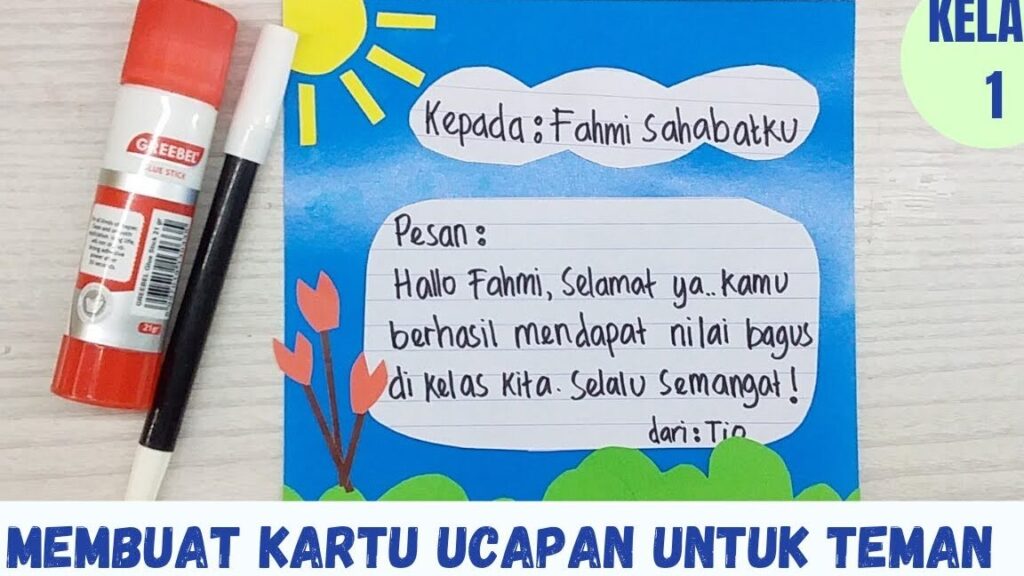 KELA
1
GREEBEL
GLUE STICK
GREEBEL Glue Stick 21 gr
21gr
Kepada: Fahmi Sahabatku
Pesan:
Hallo Fahmi, Selamat ya.. Kamu
berhasil mendapat nilai bagus
di kelas kita. Selalu semangat!
dari: Tio
MEMBUAT KARTU UCAPAN UNTUK TEMAN